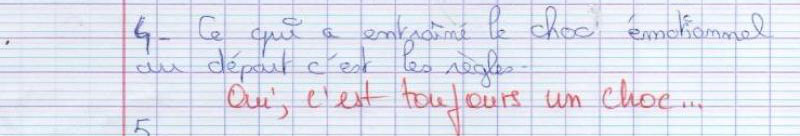 4- Ce qui a entraîné le choc émotionnel
au départ c'est les règles.
Oui, c'est toujours un choc...
5